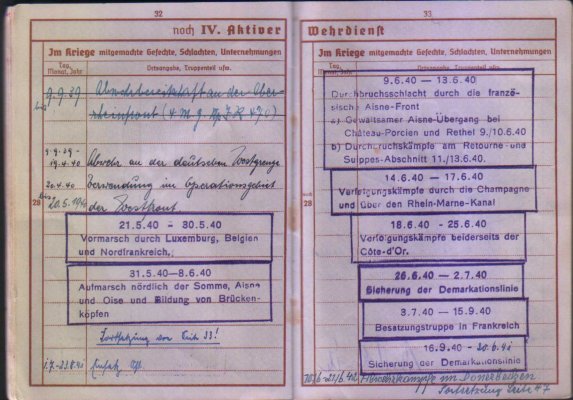 32
noch IV. Aktiver
Im Kriege mitgemachte Gefechte, Schlachten, Unternehmungen
Tag, Monat, Jahr
Ortsangabe, Truppenteil usw.
9.9.39
bis
Abwehrbereitschaft an der Ober-
rheinfront
9.9.39 -
19.4.40
Abwehr an der deutschen Westgrenze
20.4.40
bis
20.5.1940
Verwendung im Operationsgebiet
der Westfront
28
21.5.40 - 30.5.40
Vormarsch durch Luxemburg, Belgien
und Nordfrankreich,
31.5.40—8.6.40
Aufmarsch nördlich der Somme, Aisne
und Oise und Bildung von Brücken-
köpfen
Fortsetzung von Seite 33!
Einsatz
33
Wehrdienst
Im Kriege mitgemachte Gefechte, Schlachten, Unternehmungen
9.6.40 — 13.6.40
Durchbruchsschlacht durch die franzö-
sische Aisne-Front
a) Gewaltsamer Aisne-Übergang bei
Château-Porcien und Rethel 9./10.6.40
b) Durchbruchskämpfe am Retourne- und
Suippes-Abschnitt 11./13.6.40.
14.6.40 — 17.6.40
Verfolgungskämpfe durch die Champagne
und über den Rhein-Marne-Kanal
28
18.6.40 - 25.6.40
Verfolgungskämpfe beiderseits der
Côte-d'Or.
26.6.40 — 2.7.40
Sicherung der Demarkationslinie
3.7.40 — 15.9.40
Besatzungstruppe in Frankreich
16.9.40 - 20.6.41
Sicherung der Demarkationslinie
Abwehrkämpfe im Donezbecken
Fortsetzung Seite 47